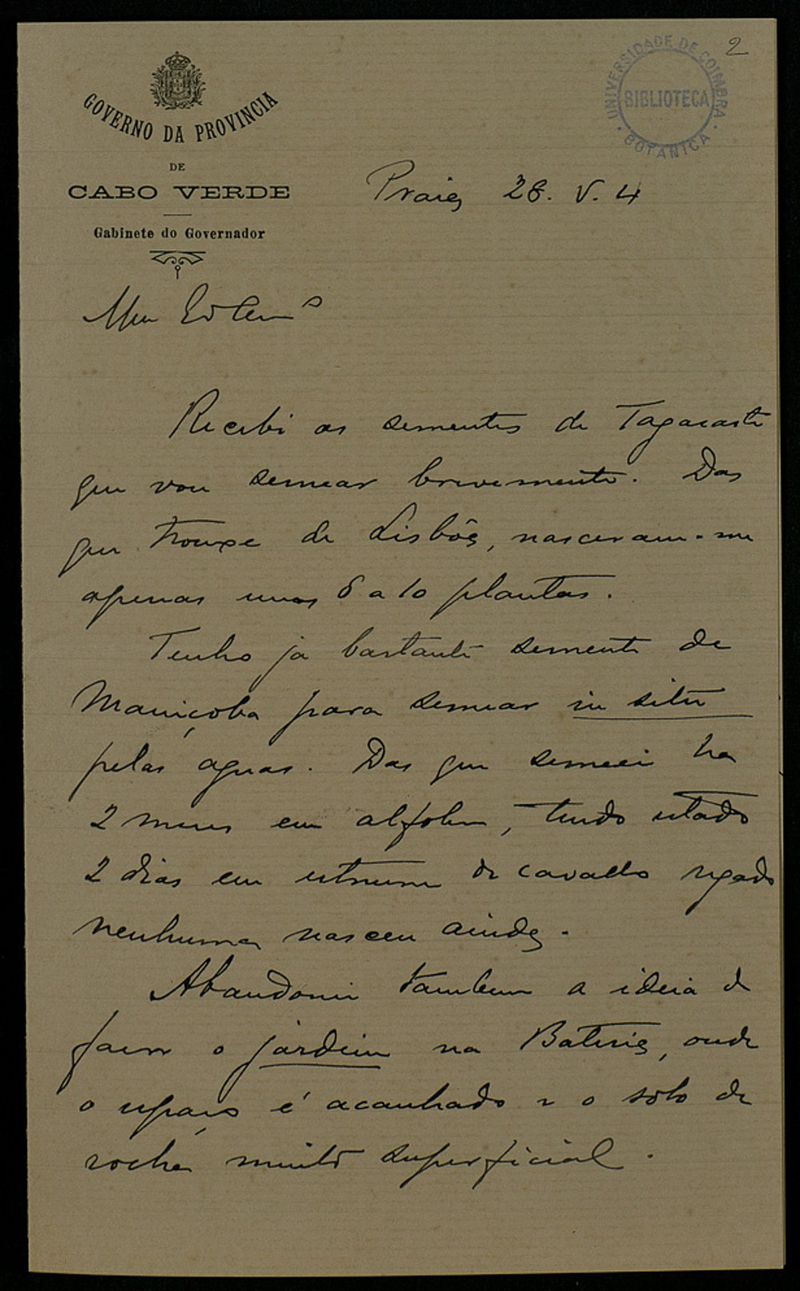 2
UNIVERSIDADE DE COIMBRA
BIBLIOTECA
BOTANICA
GOVERNO DA PROVINCIA
DE
CABO VERDE
Gabinete do Governador
Praia 28. V. 4
Meu
Recebi as sementes de Tagasaste
que vou semear brevemente. Das
que trouxe de Lisbôa, nasceram-me
apenas umas 8 a 10 plantas.
Tenho já bastante semente de
Maniçoba para semear in situ
pelas aguas. Das que semeei ha
2 meses em alfobre, tendo estado
2 dias em estrume de cavallo regado
nenhuma nasceu ainda.
Abandonei tambem a ideia de
fazer o jardim na Bateria, onde
o espaço é acanhado e o solo de
rocha muito superficial.